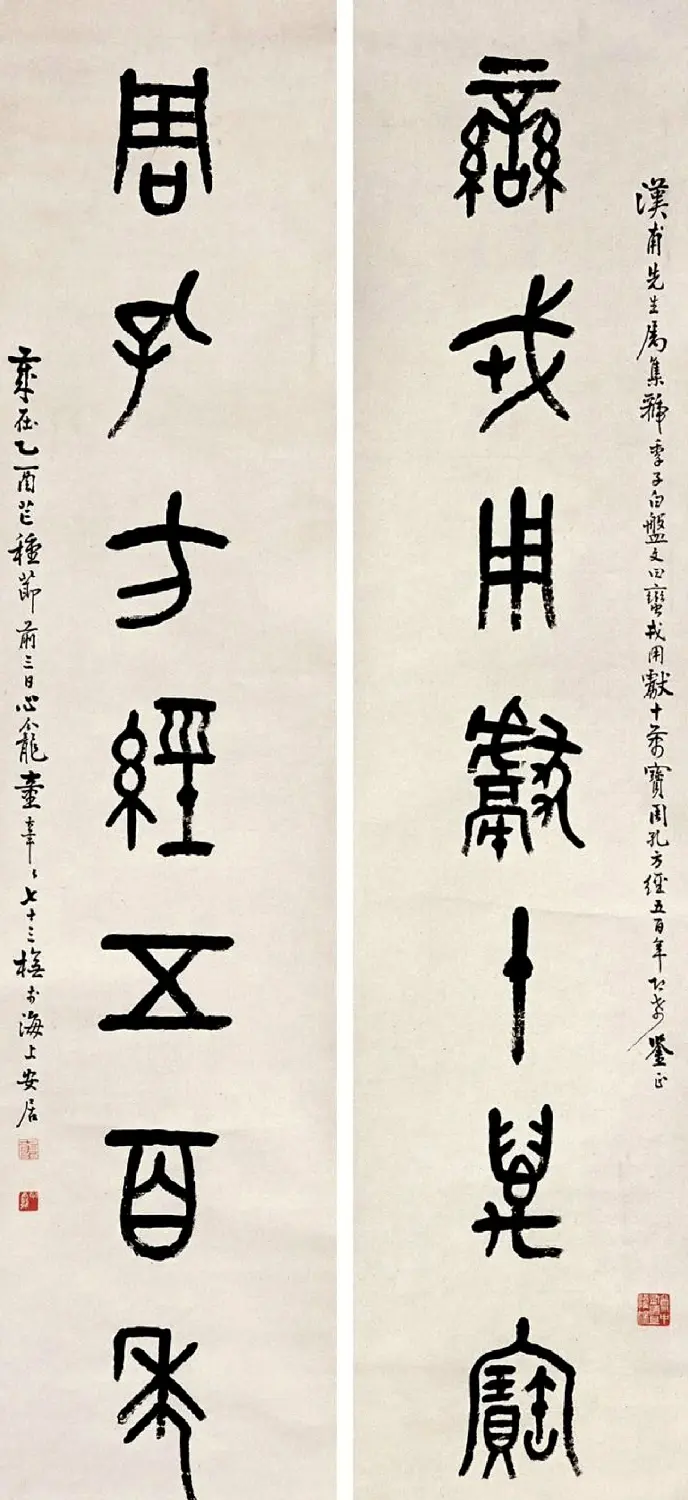 漢甫先生屬集虢季子白盤文曰蠻戎用獻十萬寶周孔方經五百年即希鑒正
䜌戎用獻十萬寶
周孔方經五百年
歲在乙酉芒種節前三日心龕童大年年七十三橅於海上安居